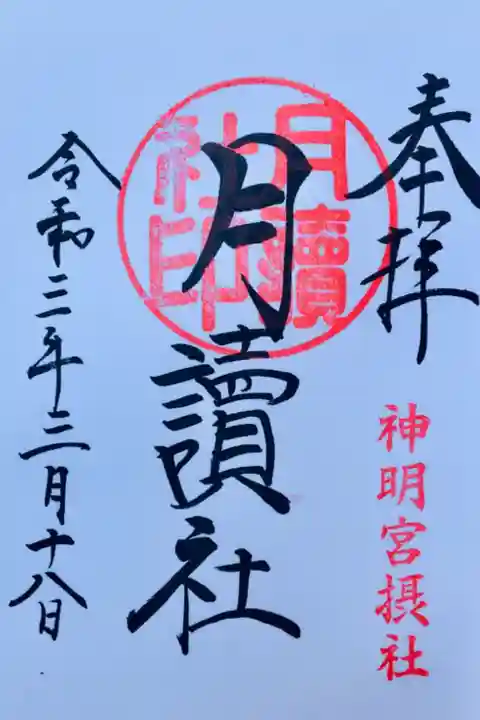 奉拝
神明宮摂社
月讀社印
月讀社
令和三年三月十八日